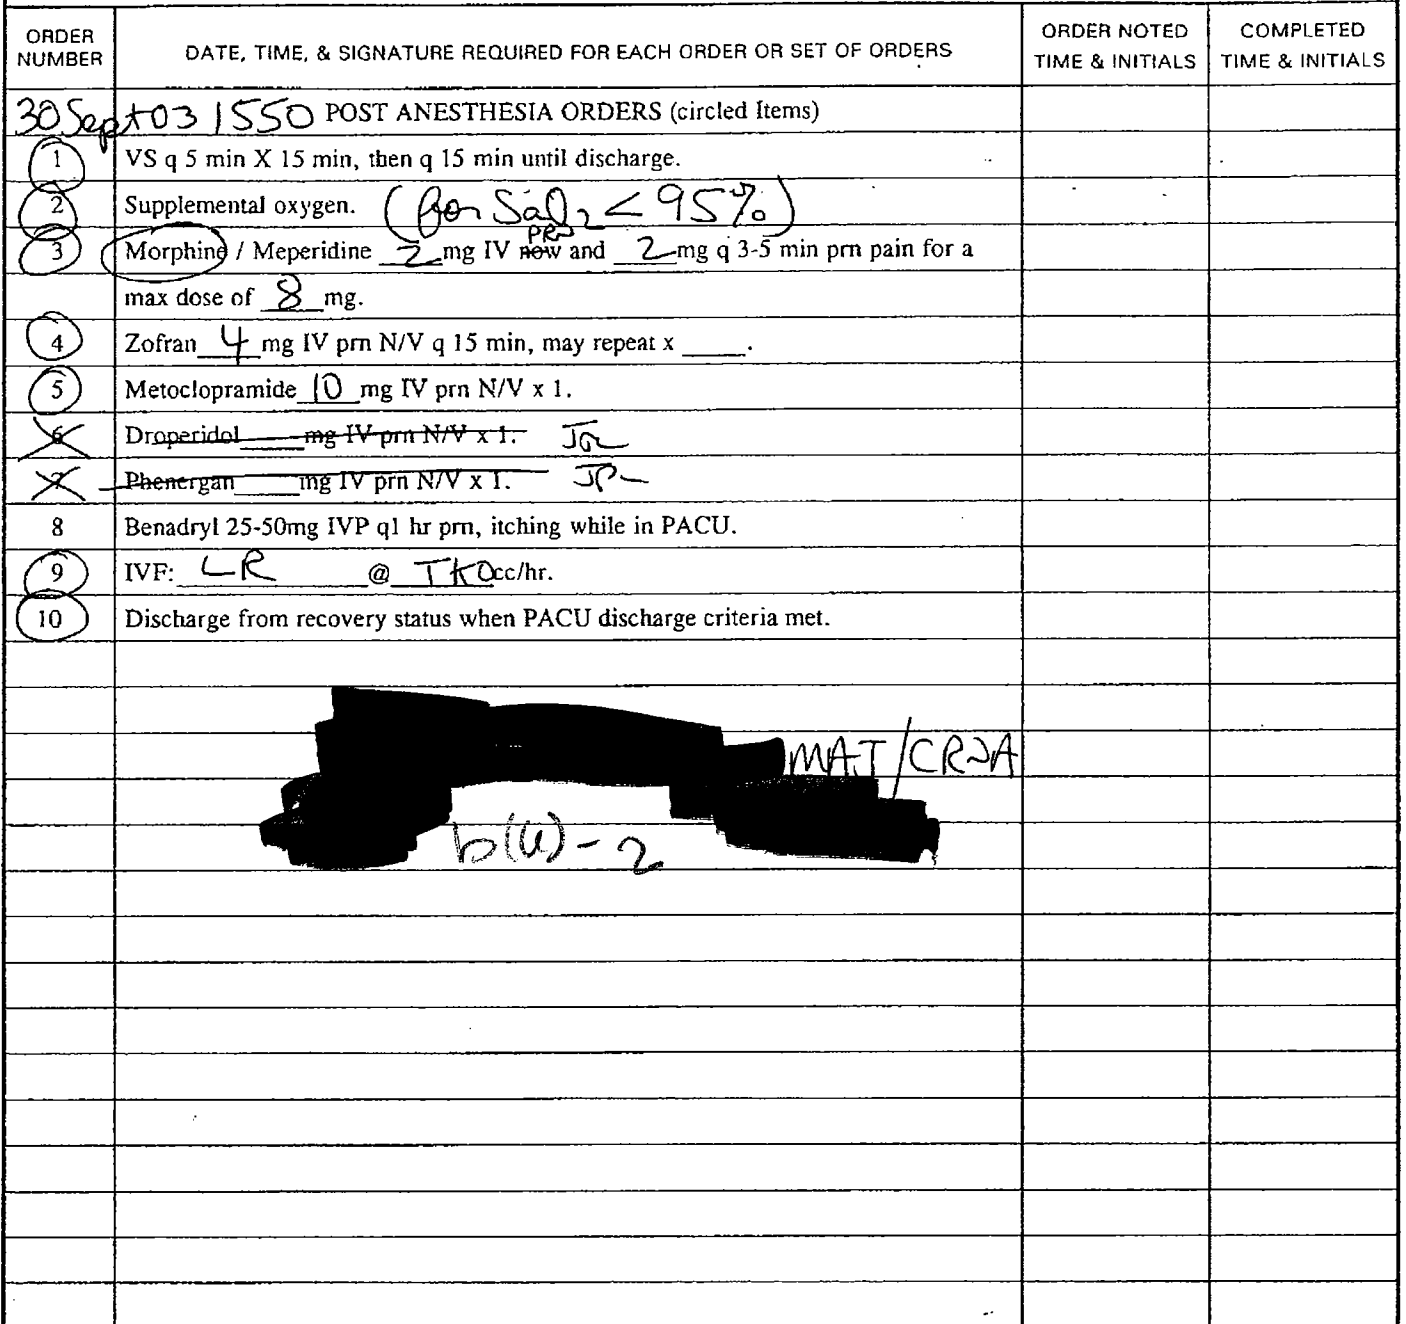 ORDER NUMBER
DATE, TIME, & SIGNATURE REQUIRED FOR EACH ORDER OR SET OF ORDERS
ORDER NOTED TIME & INITIALS
COMPLETED TIME & INITIALS
30 Sept 03 1550 POST ANESTHESIA ORDERS (circled Items)
1 VS q 5 min X 15 min, then q 15 min until discharge.
2 Supplemental oxygen. (for SaO2 < 95%)
PRN
3 Morphine / Meperidine 2 mg IV now and 2 mg q 3-5 min prn pain for a
max dose of 8 mg.
4 Zofran 4 mg IV prn N/V q 15 min, may repeat x ____.
5 Metoclopramide 10 mg IV prn N/V x 1.
6 Droperidol ____ mg IV prn N/V x 1.
7 Phenergan ____ mg IV prn N/V x 1.
8 Benadryl 25-50mg IVP q1 hr prn, itching while in PACU.
9 IVF: LR @ TKO cc/hr.
10 Discharge from recovery status when PACU discharge criteria met.
MAJ/CRNA
b(6)-2